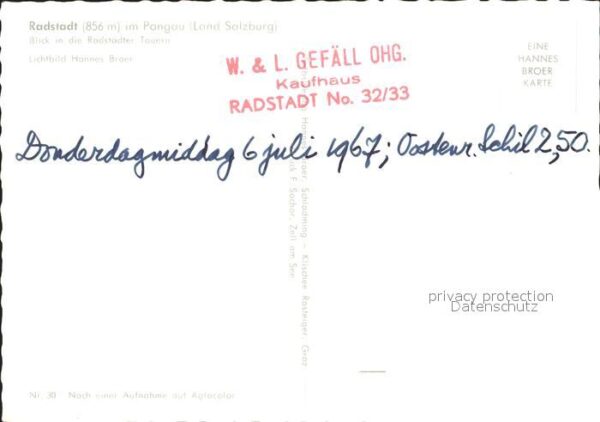 Radstadt (856 m) im Pongau (Land Salzburg)
Blick in die Radstädter Tauern
Lichtbild Hannes Broer
W. & L. GEFÄLL OHG.
Kaufhaus
RADSTADT No. 32/33
EINE
HANNES
BROER
KARTE
Donderdagmiddag 6 juli 1967; Oostenr. Schil 2,50.
Hannes Broer, Schladming – Klischee Rosteiger, Graz
F. Sochor, Zell am See
privacy protection
Datenschutz
Nr. 30 Nach einer Aufnahme auf Agfacolor